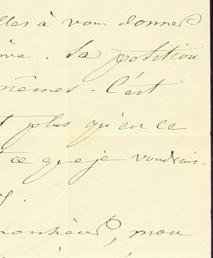 lles à vous donner
ive. Sa position
mêmes. C'est
t plus qu'en ce
t ce que je voudrais.
monheur, mon